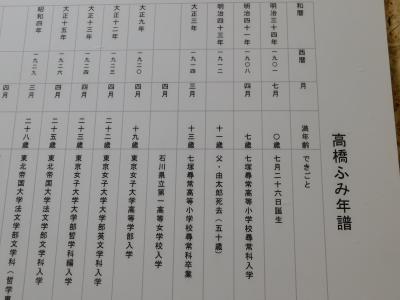 高橋ふみ年譜
和暦 西暦 月 満年齢 できごと
明治三十四年 一九〇一 七月 〇歳 七月二十六日誕生
明治四十一年 一九〇八 四月 七歳 七塚尋常高等小学校尋常科入学
明治四十三年 一九一二 十一歳 父・由太郎死去(五十歳)
大正三年 一九一四 三月 十三歳 七塚尋常高等小学校尋常科卒業
四月 石川県立第一高等女学校入学
大正九年 一九二〇 四月 十九歳 東京女子大学高等学部入学
大正十二年 一九二三 四月 二十二歳 東京女子大学大学部英文学科入学
大正十三年 一九二四 四月 東京女子大学大学部哲学科編入学
大正十五年 一九二六 四月 二十五歳 東北帝国大学法文学部文学科入学
昭和四年 一九二九 三月 二十八歳 東北帝国大学法文学部文学科(哲学専
四月